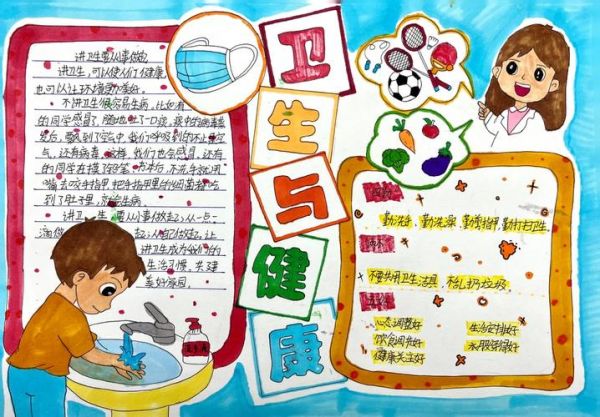 讲卫生要从小事做起
讲卫生,可以使人们健康,
也可以让环境更美好。
不讲卫生很容易生病,比如有
的同学感冒了,随地吐了一口痰,痰中的病毒蒸
发后,飘到了空气中,我们呼吸到的不止是空
气,还有病毒,这样,我们也会感冒,还有
的同学在摸了铅笔、书本后,不洗手就用
嘴去咬手指甲,把手指甲里的细菌都吃
到了肚子里,就会生病。
讲卫生,要从小事做起,从一点一
滴做起,从自己做起,让
讲卫生成为我们的
生活习惯,共建
美好家园。
卫
生
与
健
康
勤洗手、勤洗澡、勤剪指甲、勤打扫卫生
不要共用卫生洁具,不乱扔垃圾
心态调整好
生活安排好
饮食调节好
衣服穿得好
健康关注好